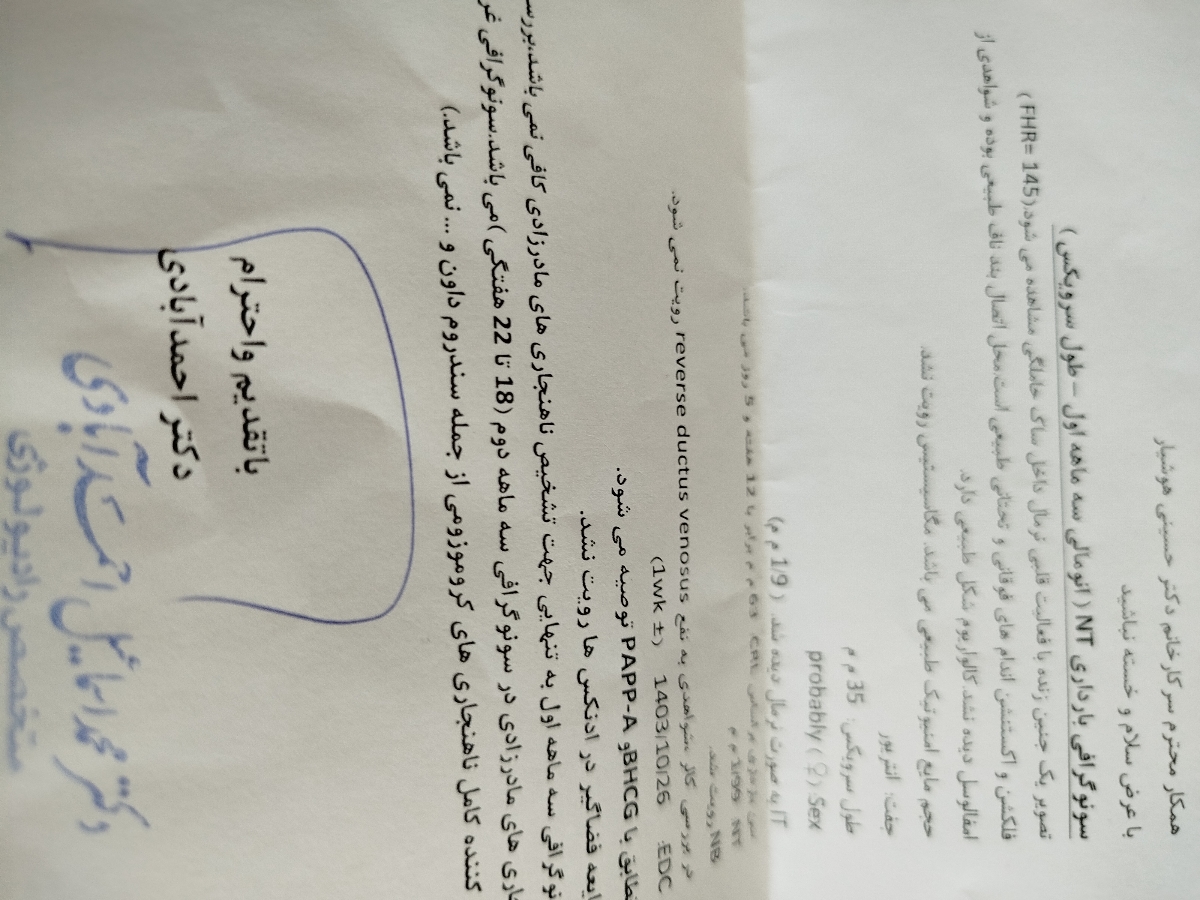 همکار محترم سرکار خانم دکتر حسینی هوشیار
با عرض سلام و خسته نباشید
سونوگرافی بارداری NT ( انومالی سه ماهه اول – طول سرویکس )
تصویر یک جنین زنده با فعالیت قلبی نرمال داخل ساک حاملگی مشاهده می شود.(FHR= 145 )
فلکشن و اکستنشن اندام های فوقانی و تحتانی طبیعی است.محل اتصال بند ناف طبیعی بوده و شواهدی از
امفالوسل دیده نشد.کالواریوم شکل طبیعی دارد.
حجم مایع امنیوتیک طبیعی می باشد. مگاسیستیس رویت نشد.
جفت: انتریور
طول سرویکس: 35 م م
probably ( ♀ ) Sex
IT به صورت نرمال دیده شد. ( 1/9 م م )
سن جنینی بر اساس CRL 63 م م برابر با 12 هفته و 5 روز می باشد.
NT 1/99 م م
NB رویت شد.
در بررسی کالر شواهدی به نفع reverse ductus venosus رویت نمی شود.
EDC: 1403/10/26 (1wk ±)
تطابق با BHCG و PAPP-A توصیه می شود.
ضایعه فضاگیر در ادنکس ها رویت نشد.
نوگرافی سه ماهه اول به تنهایی جهت تشخیص ناهنجاری های مادرزادی کافی نمی باشد.بررس
اری های مادرزادی در سونوگرافی سه ماهه دوم (18 تا 22 هفتگی )می باشد.سونوگرافی غر
کننده کامل ناهنجاری های کروموزومی از جمله سندروم داون و ... نمی باشد.)
باتقدیم واحترام
دکتر احمدآبادی
دکتر محمد اسماعیل احمدآبادی
متخصص رادیولوژی